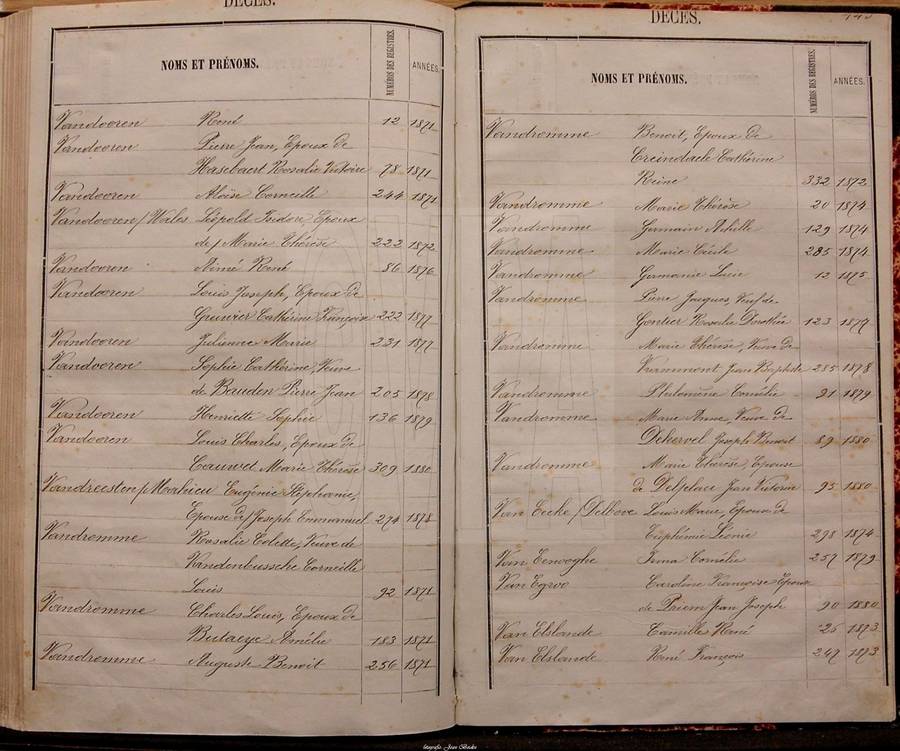 DÉCÈS.
NOMS ET PRÉNOMS. NUMÉROS DES REGISTRES. ANNÉES.
Vandooren René 12 1871
Vandooren Pierre Jean, Epoux de
Hasebaert Rosalie Victoire 78 1871
Vandooren Aloïse Corneille 244 1871
Vandooren / Wales Léopold Isidor, Epoux
de / Marie Thérèse 222 1872
Vandooren Aimé René 86 1876
Vandooren Louis Joseph, Epoux de
Grunier Catherine Françoise 222 1877
Vandooren Julienne Marie 231 1877
Vandooren Sophie Catherine, Veuve
de Bauden Pierre Jean 205 1878
Vandooren Henriette Sophie 136 1879
Vandooren Louis Charles, Epoux de
Cauwet Marie Thérèse 309 1880
Vandreeston / Mathieu Eugénie Stéphanie,
Epouse de / Joseph Emmanuel 274 1878
Vandromme Rosalie Colette, Veuve de
Vandenbussche Corneille
Louis 92 1871
Vandromme Charles Louis, Epoux de
Butaeye Amélie 183 1871
Vandromme Auguste Benoit 256 1871
DÉCÈS.
NOMS ET PRÉNOMS. NUMÉROS DES REGISTRES. ANNÉES.
Vandromme Benoit, Epoux de
Catherine
Reine 332 1872
Vandromme Marie Thérèse 20 1874
Vandromme Germain Achille 129 1874
Vandromme Marie Cécile 285 1874
Vandromme Germanie Lucie 12 1875
Vandromme Pierre Jacques, Veuf de
Gontier Rosalie Dorothée 123 1877
Vandromme Marie Thérèse, Veuve de
Vrammont Jean Baptiste 285 1878
Vandromme Philomène Cornélie 91 1879
Vandromme Marie Anne, Veuve de
Dekervel Joseph Benoit 89 1880
Vandromme Marie Thérèse, Epouse
de Delplace Jean Victorin 95 1880
Van Eecke / Delbove Louis Marie, Epoux de
Euphémie Léonie 298 1874
Van Eenooghe Irma Cornélie 257 1879
Van Egroo Caroline Françoise Epouse
de Priem Jean Joseph 90 1880
Van Elslande Camille René 26 1873
Van Elslande René François 247 1873